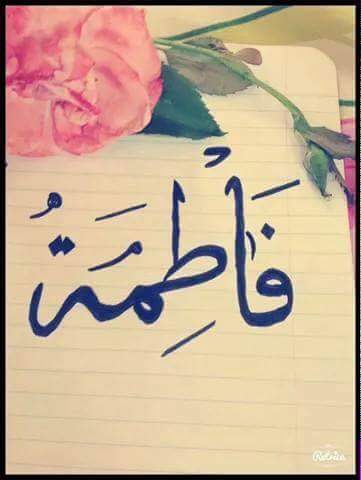 فَاْطِمَةُ
Retrica